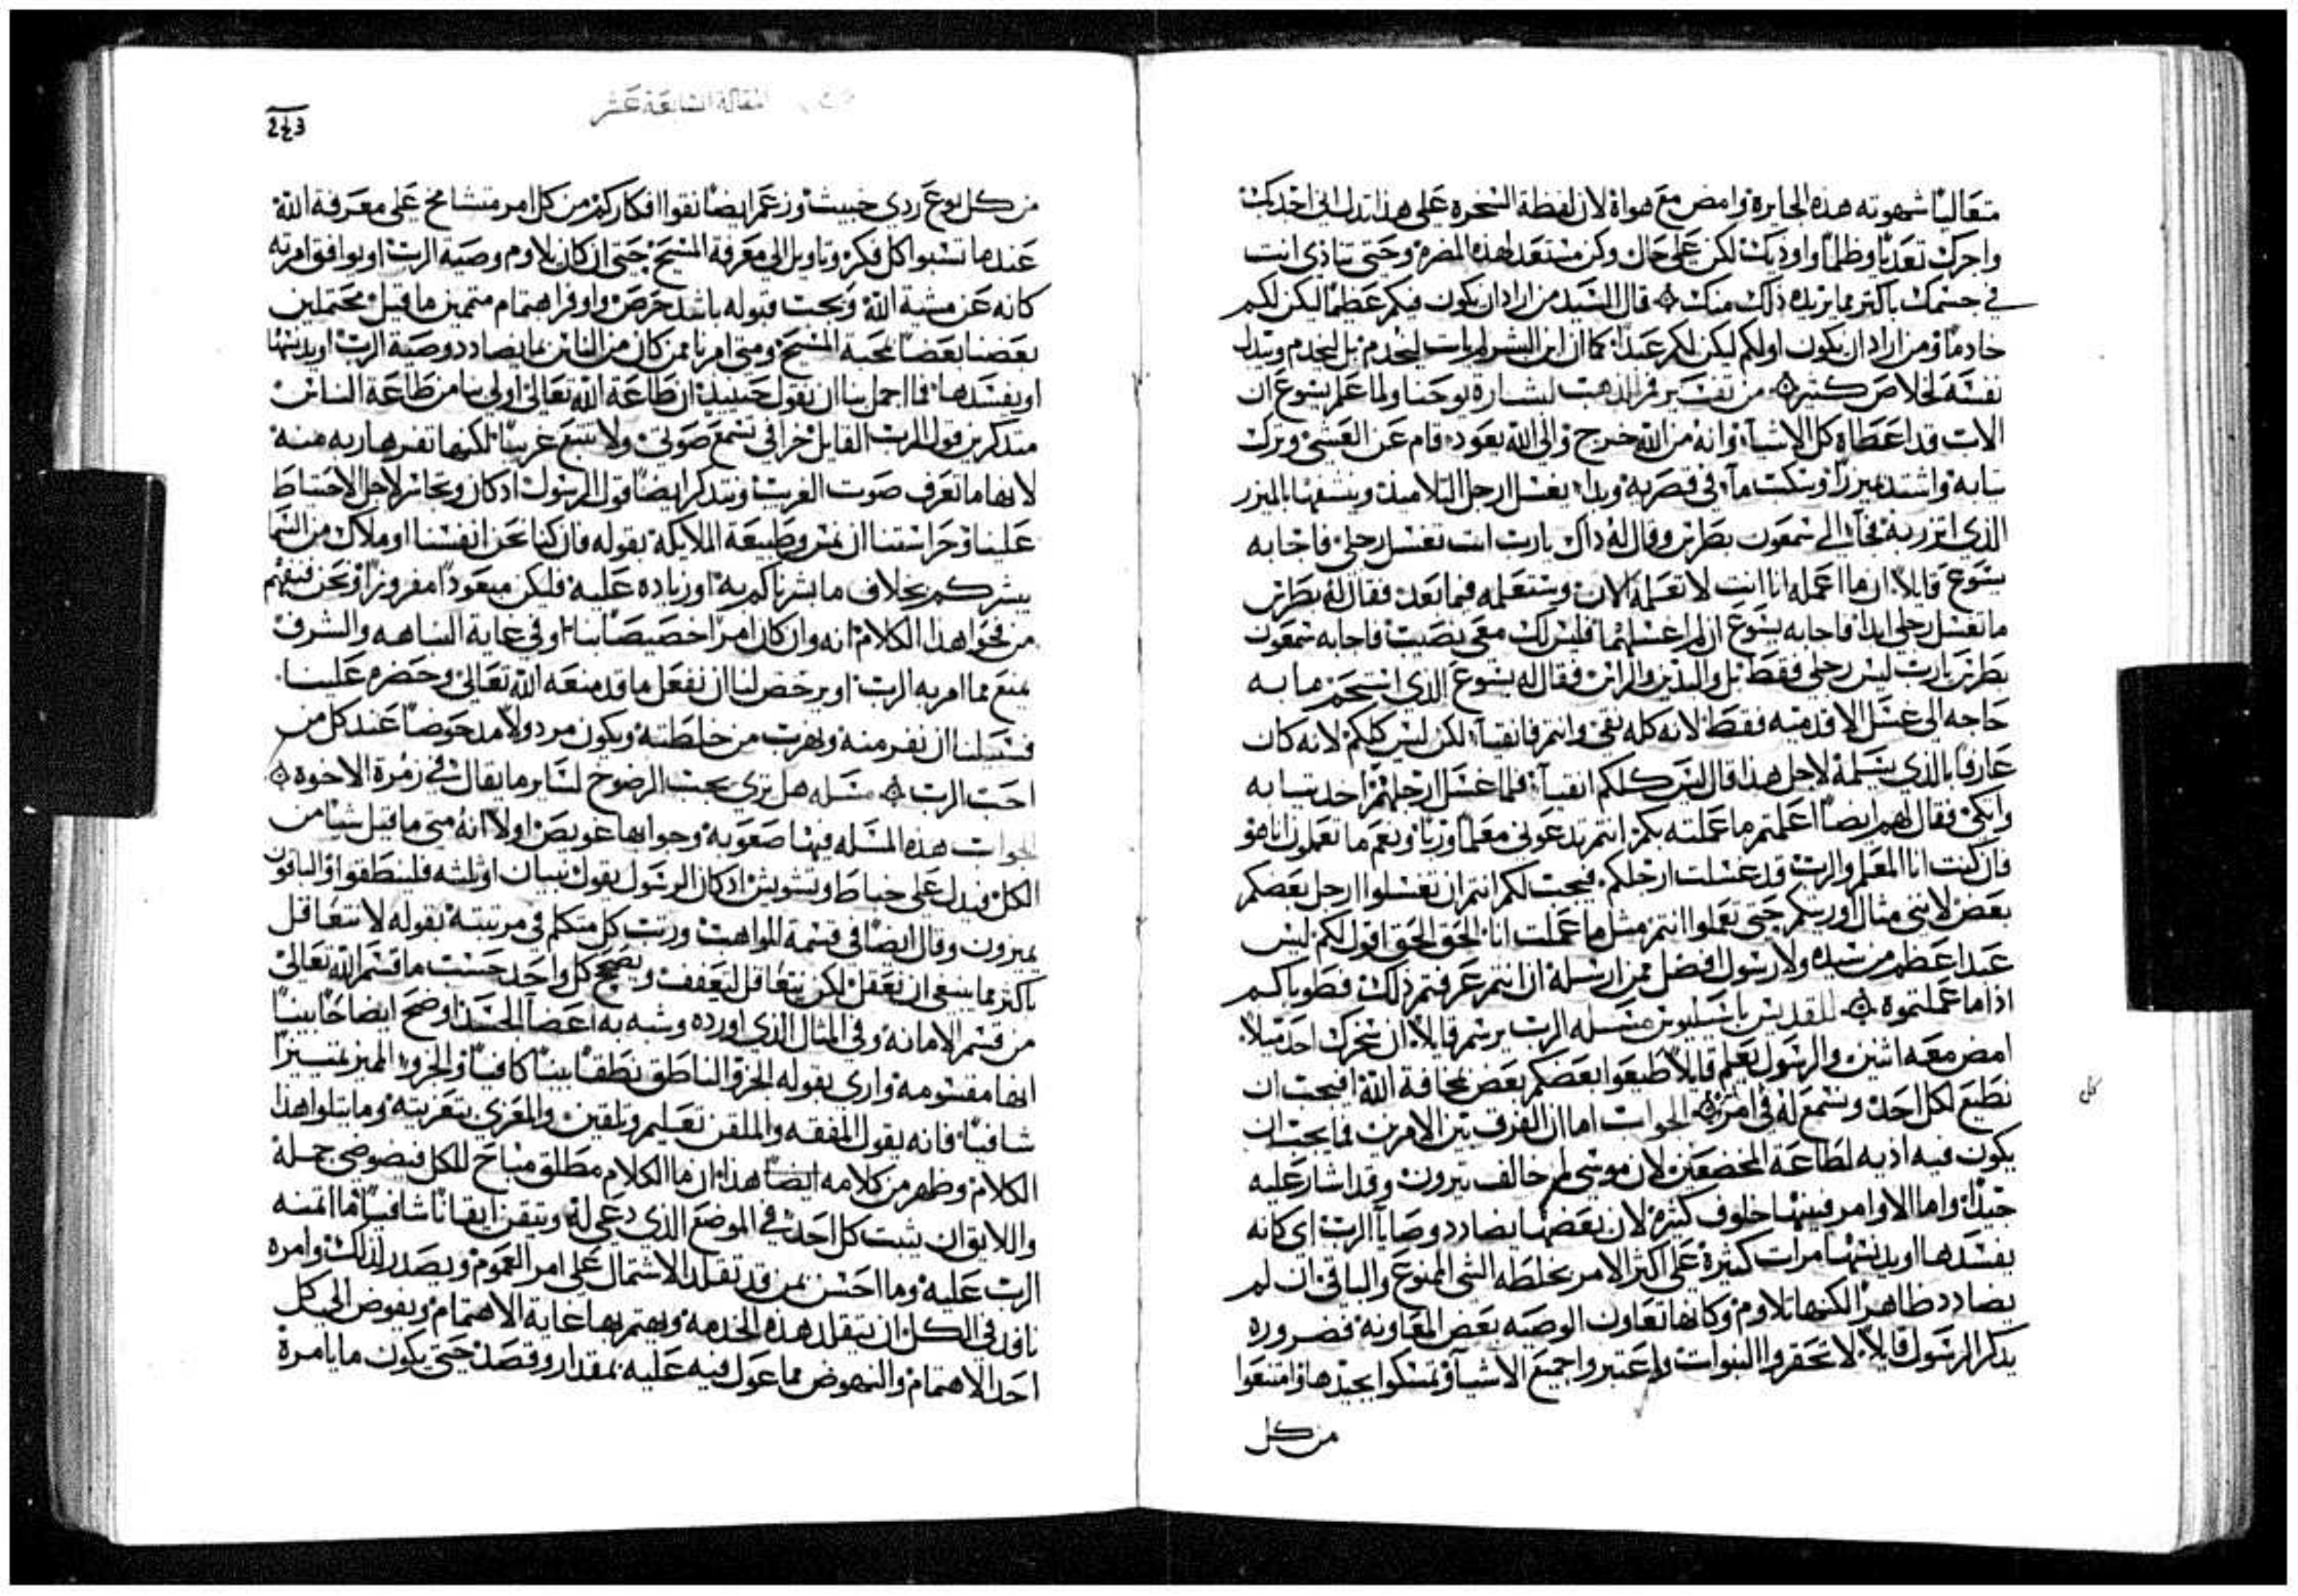 متعاليًا شهوته هذه الجايرة وامض مع هواة لان لفظة السخره على هذا تدل اني اخدكت
واجرك تعديًا وظلمًا واوديك لكن على حال وكن مستعد لهذه المضره وحتى تتاذى انت
في جسمك باكتر مما يريده ذلك منك قال السيد من اراد ان يكون فيكم عظمًا ليكن لكم
خادمًا ومن اراد ان يكون اولكم ليكن لكم عبدًا كما ان ابن البشر لم يات ليُخدم بل ليخدم ويبدل
نفسه لخلاص كثير من تفسير فم الذهب لبشارة يوحنا ولما علم يسوع ان
الاب قد اعطاه كل الاشيا وانه من الله خرج والى الله يعود قام عن العشى وترك
ثيابه واشتد ميزرًا وسكب مآ في قصريه وبدا يغسل ارجل التلاميذ وينشفها بالميزر
الذي اتزر به فجآ الى سمعون بطرس وقال له ذاك يارب انت تغسل رجلي فاجابه
يسوع قايلًا ان ما اعمله انا انت لا تعلمه الان وستعلمه فيما بعد فقال له بطرس
ما تغسل رجلي ابدًا فاجابه يسوع ان لم اغسلهما فليس لك معي نصيب فاجابه سمعون
بطرس يارب ليس رجلي فقط بل واليدين والراس فقال له يسوع الذي استحم ما به
حاجه الى غسل الا قدميه فقط لانه كله نقي وانتم فانقيا لكن ليس كلكم لانه كان
عارفًا بالذي يسلمه لاجل هذا قال ليس كلكم انقيآ فلما غسل ارجلهم اخد ثيابه
واتكى فقال لهم ايضًا اعلمتم ما عملته بكم انتم تدعوني معلمًا وربًا ونعم ما تعملون انا هو
فان كنت انا المعلم والرب قد غسلت ارجلكم فيجب لكم انتم ان تغسلوا ارجل بعضكم
بعض لانني مثال اوريتكم حتى تعملوا انتم مثل ما عملت انا الحق الحق اقول لكم ليس
عبد اعظم من سيده ولا رسول افضل ممن ارسله ان انتم عرفتم ذلك فطوباكم
اذا ما عملتموه للقديس باسيليوس مسله الرب يرسم قايلًا ان سخرك احد ميلًا
امض معه اثنين والرسول يعلم قايلًا اطيعوا بعضكم بعض بمخافة الله افيجب ان
نطيع لكل احد ونسمع له في امر الجواب اما ان الفرق بين الامرين فما يجب ان
يكون فيه اذيه لطاعة المخضعين لان موسى لم خالف يترون وقد اشار عليه
جيدًا واما الاوامر فبينها خلوف كثيره لان بعضها يضادد وصايا الرب اي كانه
يفسدها او يدنسها مرات كثيرة على اكثر الامر بخلطه الشي الممنوع والباقي ان لم
يضادد ظاهرًا لكنها تلاوم وكانها تعاون الوصيه بعض المعاونه فضروره
يذكر الرسول قايلًا لا تحقروا النبوات واعتبروا جميع الاشيآ وتمسكوا بجيدها وامتنعوا
من كل
كل
المقالة السابعة عشر
من كل نوع ردي خبيث وزعم ايضًا نقوا افكاركم من كل امر متشامخ على معرفة الله
عندما تسبوا كل فكره وتاويل الى معرفة المسيح حتى ان كان يلاوم وصية الرب او يوافق امرته
كانه عن مشية الله ويجب قبوله باشد حرص واوفر اهتمام متممين ما قيل محتملين
بعضنا بعضًا بمحبة المسيح ومتى امرنا ممن كان من الناس بما يضادد وصية الرب او يدنسها
او يفسدها فما اجمل بنا ان نقول حينيذ ان طاعة الله تعالى اولى بنا من طاعة الناس
متذكرين قول الرب القايل خرافي تسمع صوتي ولا تتبع غريبًا لكنها تفر هاربه منه
لانها ما تعرف صوت الغريب ونتذكر ايضًا قول الرسول اذ كان وتجاسر لاجل الاحتياط
علينا وحراستنا ان يمس طبيعة الملايكة بقوله فان كنا نحن انفسنا او ملاك من السما
يبشركم بخلاف ما بشرناكم به او زياده عليه فليكن مبعودًا مفروزًا ونحن فنفهم
من فحوا هذا الكلام انه وان كان امرًا خصيصًا بنا او في غاية النباهه والشرف
يمنع مما امر به الرب او يرخص لنا ان نفعل ما قد منعه الله تعالى وحضره علينا
فسبيلنا ان نفر منه ونهرب من خلطته ويكون مردولًا مدحوضًا عند كل من
احب الرب مسله هل ترى يجب الرضوخ لساير ما يقال في زمرة الاخوة
الجواب هذه المسله فيها صعوبة وجوابها عويص اولًا انه متى ما قيل شيا من
الكل فيدل على خباط وتشويش اذ كان الرسول يقول نبيان او ثلثه فلينطقوا والباقون
يميزون وقال ايضًا في قسمة المواهب ورتب كل متكلم في مرتبته بقوله لا تتعاقل
باكثر مما ينبغي ان تعقل لكن يتعاقل ليعفف ويصحح كل واحد حسب ما قسم الله تعالى
من قسم الامانه وفي المثال الذي اورده وشبه به اعضآ الجسد اوضح ايضًا
انها مقسومه واري بقوله الجزو الناطق نطقًا بينًا كافيًا والجزو المميز تمييزًا
شافيًا فانه يقول المفقه والملقن تعليم وتلقين والمعزي بتعزيته وما يتلوا هذا
الكلام وظهر من كلامه ايضًا هذا ان ما الكلام مطلق مباح للكل فيضوضي جملة
واللايق ان يثبت كل احد في الموضع الذي دعي له ويتيقن ايقانًا شافيًا ما ائتمنه
الرب عليه وما احسن بمن قد تقلد الاشتمال على امر العموم ويصدر لذلك وامره
نافذ في الكل ان يتقلد هذه الخدمه ويهتم بها غاية الاهتمام ويفوض الى كل
احد الاهتمام والنهوض مما عول فيه عليه بمقدار وقصد حتى يكون ما يامره